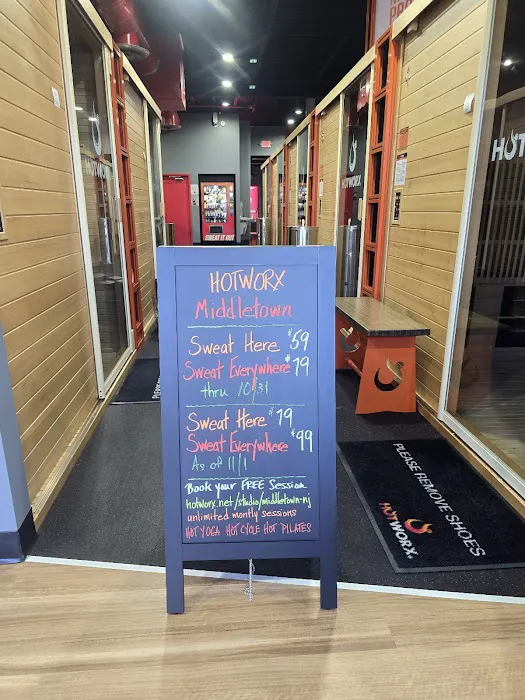 HOTWORX
Middletown
Sweat Here $59
Sweat Everywhere $79
thru 10/31
Sweat Here $79
Sweat Everywhere $99
As of 11/1
Book your FREE Session
hotworx.net/studio/middletown-nj
unlimited montly sessions
HOT YOGA HOT CYCLE HOT PILATES
PLEASE REMOVE SHOES
HOTWORX
HOTWORX
SWEAT IT OUT